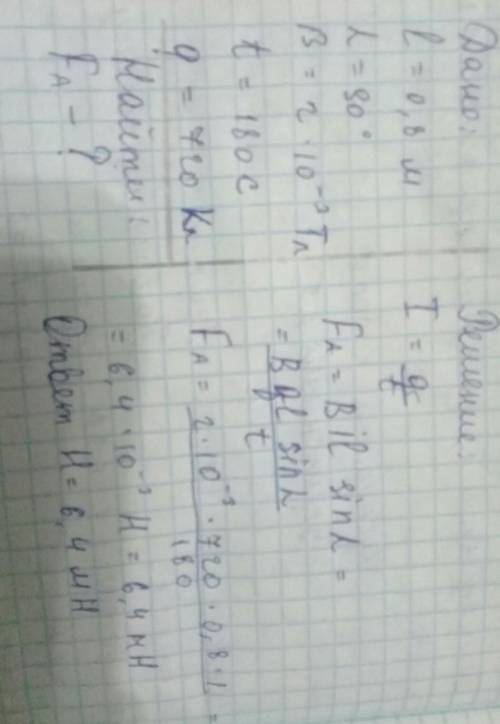 Дано:
l = 0,8 м
α = 90°
B = 2 · 10⁻³ Тл
t = 180 с
q = 720 Кл
Найти:
F_A - ?
Решение:
I = q/t
F_A = B i l sin α =
= B q l sin α / t
F_A = 2 · 10⁻³ · 720 · 0,8 · 1 / 180 =
= 6,4 · 10⁻³ Н = 6,4 мН
Ответ Н = 6,4 мН